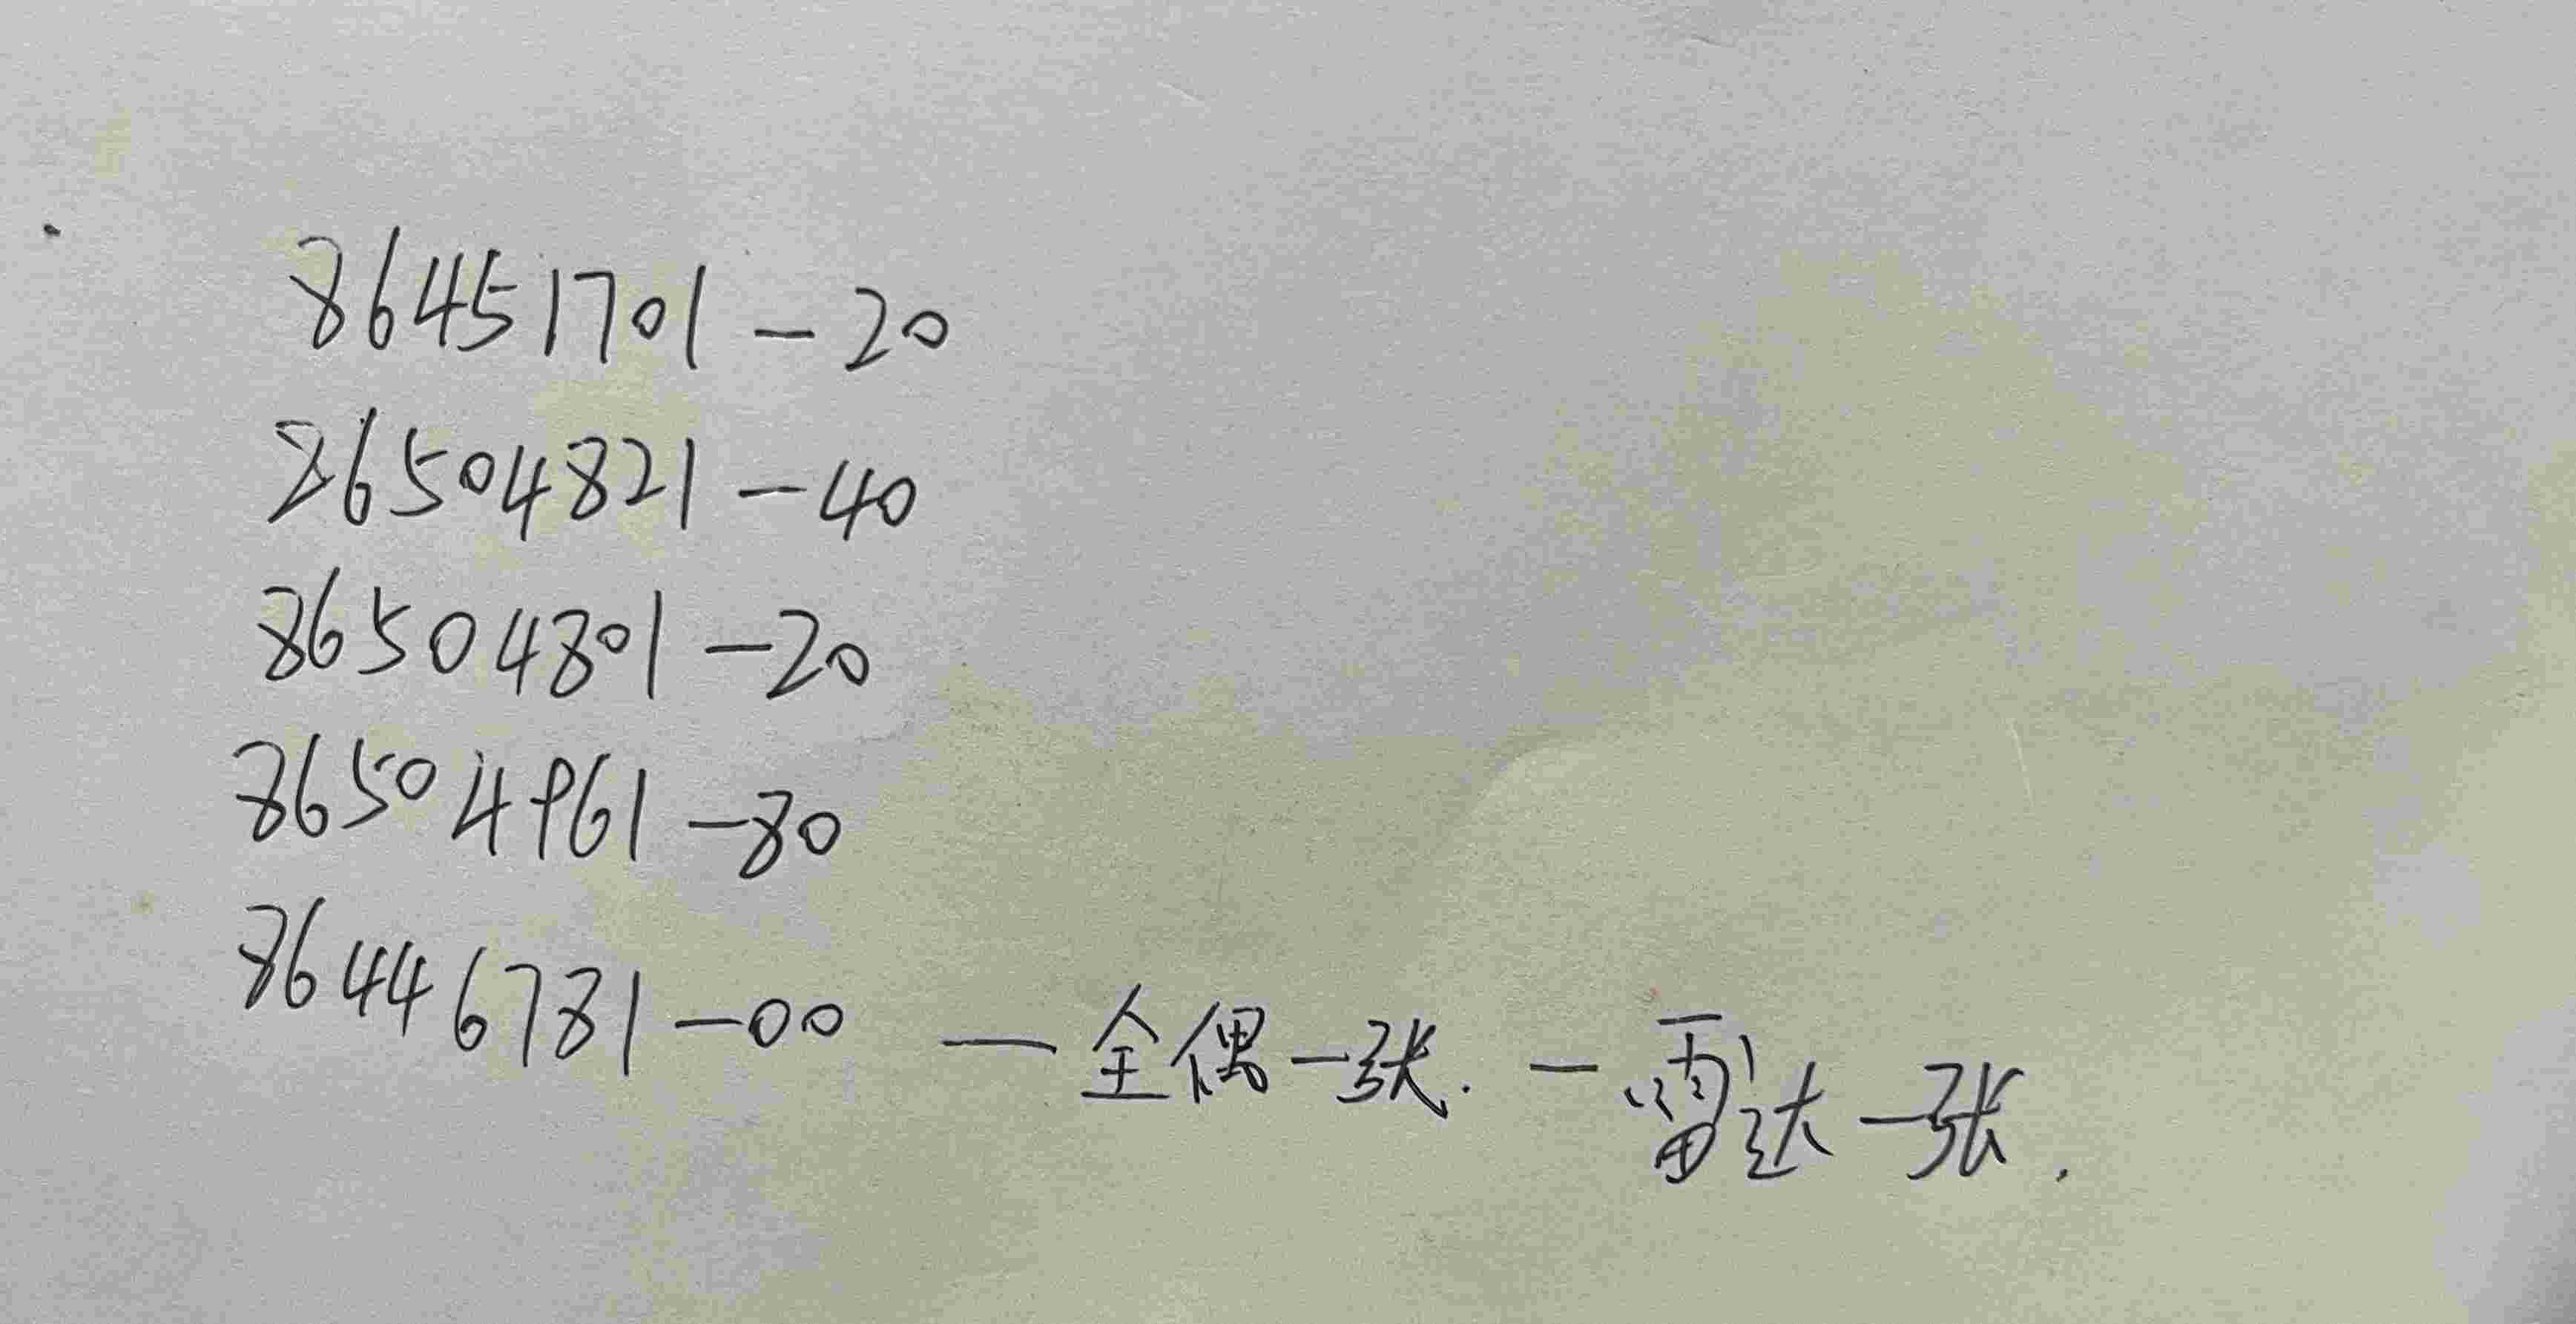 86451701-20
86504821-40
86504801-20
86504961-80
86446781-00 —全偶一张. -雷达一张.